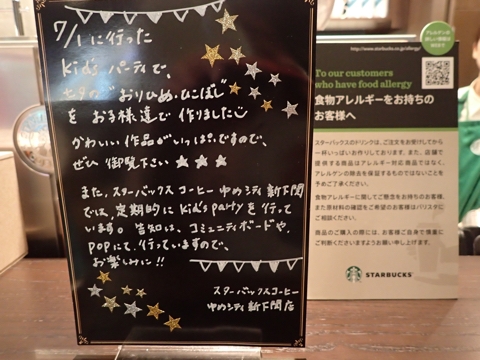 7/1に行った
Kid's パーティで、
七夕の"おりひめ・ひこぼし"
を お子様達で 作りました
かわいい作品がいっぱいですので、
ぜひ 御覧下さい ★ ★ ★
また、スターバックス コーヒー ゆめシティ新下関店
では、定期的に Kid's partyを行って
います。告知は、コミュニティボードや、
POPにて、行っていますので、
お楽しみに!!
スターバックスコーヒー
ゆめシティ 新下関店
アレルゲンの
詳しい情報は
WEBで
http://www.starbucks.co.jp/allergy/
To our customers
who have food allergy
食物アレルギーをお持ちの
お客様へ
スターバックスのドリンクは、ご注文をお受けしてから
一杯一杯お作りしております。また、店舗で
提供する商品はアレルギー対応商品ではなく、
アレルゲンの除去を保証するものではないことを
予めご了承ください。
食物アレルギーに関してご懸念をお持ちのお客様、
また原材料の確認をご希望のお客様はバリスタに
ご相談ください。
商品のご購入の際には、お客様ご自身で慎重に
ご判断くださいますようお願い申し上げます。
STARBUCKS